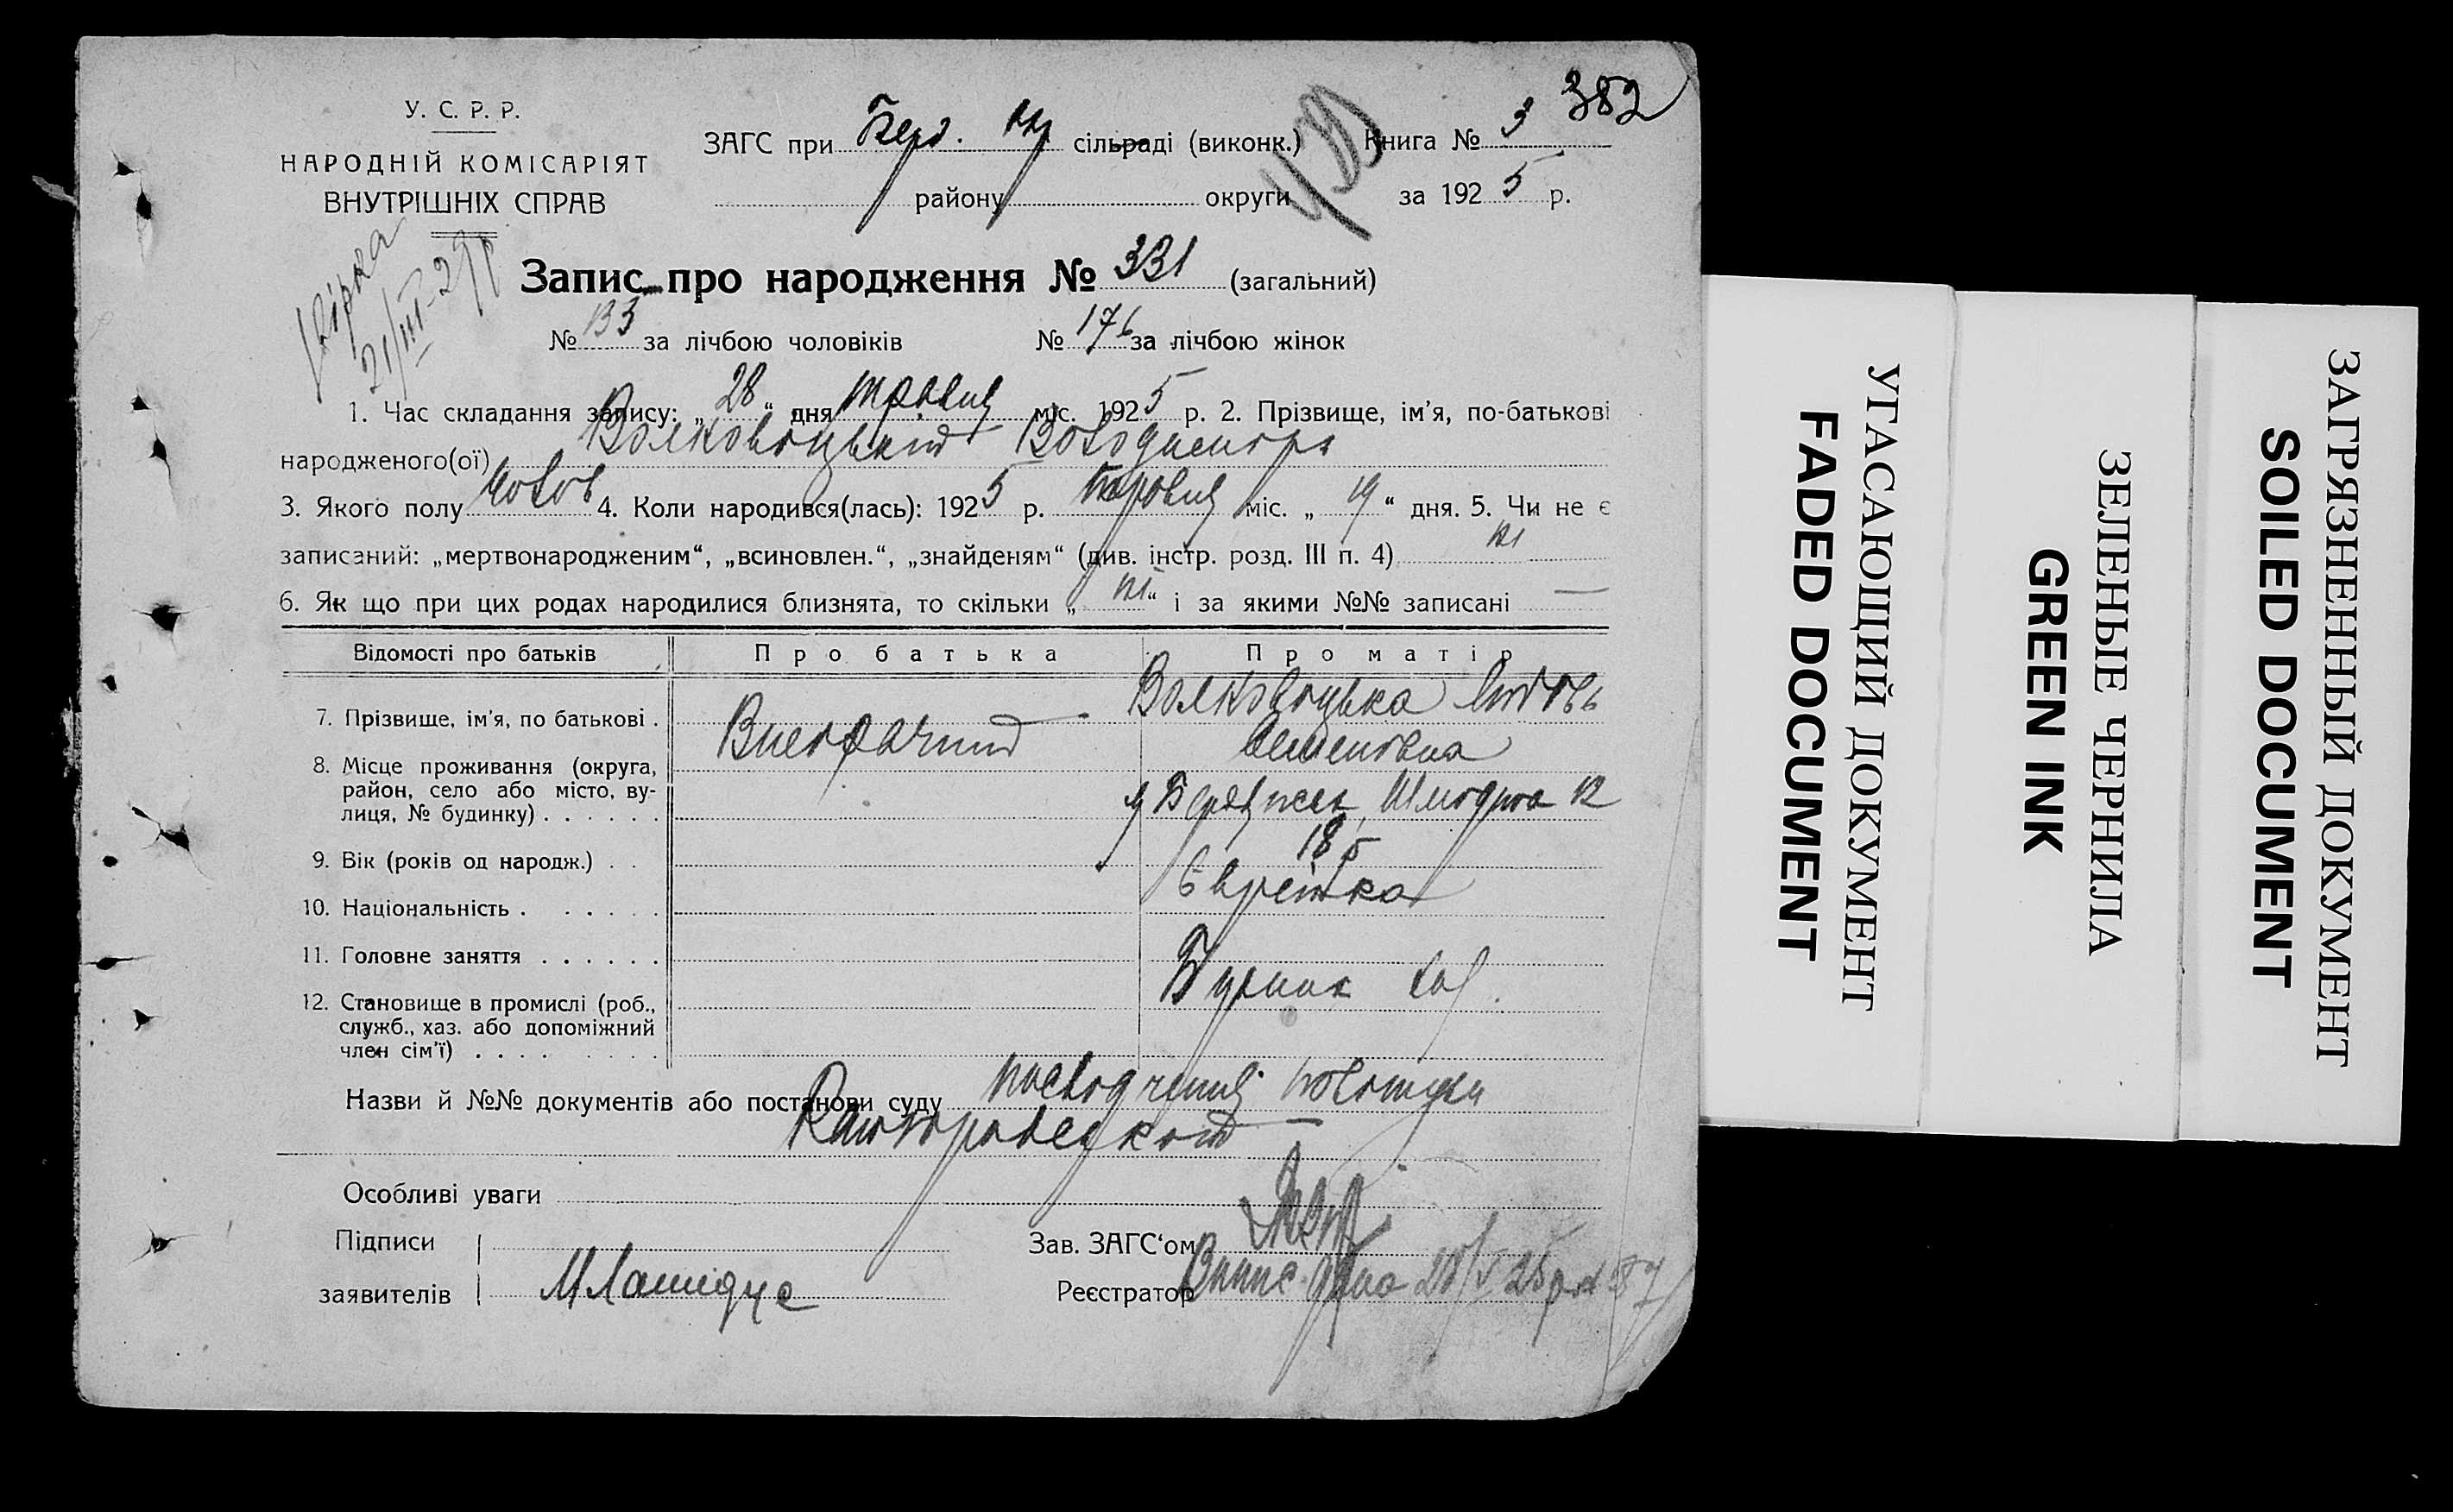 382
У. С. Р. Р.
НАРОДНІЙ КОМІСАРІЯТ
ВНУТРІШНІХ СПРАВ
ЗАГС при Берд. сільраді (виконк.) Книга № 3
району округи за 1925 р.
21/III-29р
Запис про народження № 331 (загальний)
№ 155 за лічбою чоловіків № 176 за лічбою жінок
1. Час складання запису: „28“ дня травня міс. 1925 р. 2. Прізвище, ім'я, по-батькові
народженого(ої) Володимир
3. Якого полу чолов 4. Коли народився(лась): 1925 р. травня міс. „19“ дня. 5. Чи не є
записаний: „мертвонародженим“, „всиновлен.“, „знайденям“ (див. інстр. розд. III п. 4) ні
6. Як що при цих родах народилися близнята, то скільки „ні“ і за якими №№ записані —
Відомості про батьків Про батька Про матір
7. Прізвище, ім'я, по батькові . Внебрачний Волковицька Любовь
Семеновна
8. Місце проживання (округа,
район, село або місто, ву-
лиця, № будинку) . . . . . . м Бердичев, 12
9. Вік (років од народж.) . . 18 р
10. Національність . . . . . . Єврейка
11. Головне заняття . . . . . .
12. Становище в промислі (роб.,
служб., хаз. або допоміжний
член сім'ї) . . . . . . . .
Назви й №№ документів або постанови суду посвідчення
Особливі уваги
Підписи
заявителів
Зав. ЗАГС'ом
Реєстратор
УГАСАЮЩИЙ ДОКУМЕНТ
FADED DOCUMENT
ЗЕЛЕНЫЕ ЧЕРНИЛА
GREEN INK
ЗАГРЯЗНЕННЫЙ ДОКУМЕНТ
SOILED DOCUMENT